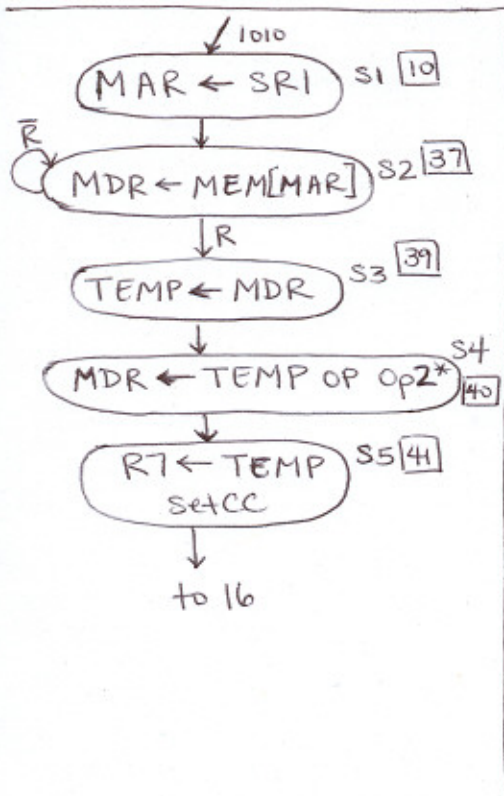 1010
MAR ← SR1 S1 10
R̅
MDR ← MEM[MAR] S2 37
R
TEMP ← MDR S3 39
S4
MDR ← TEMP OP Op2* 40
R7 ← TEMP S5 41
SetCC
to 16